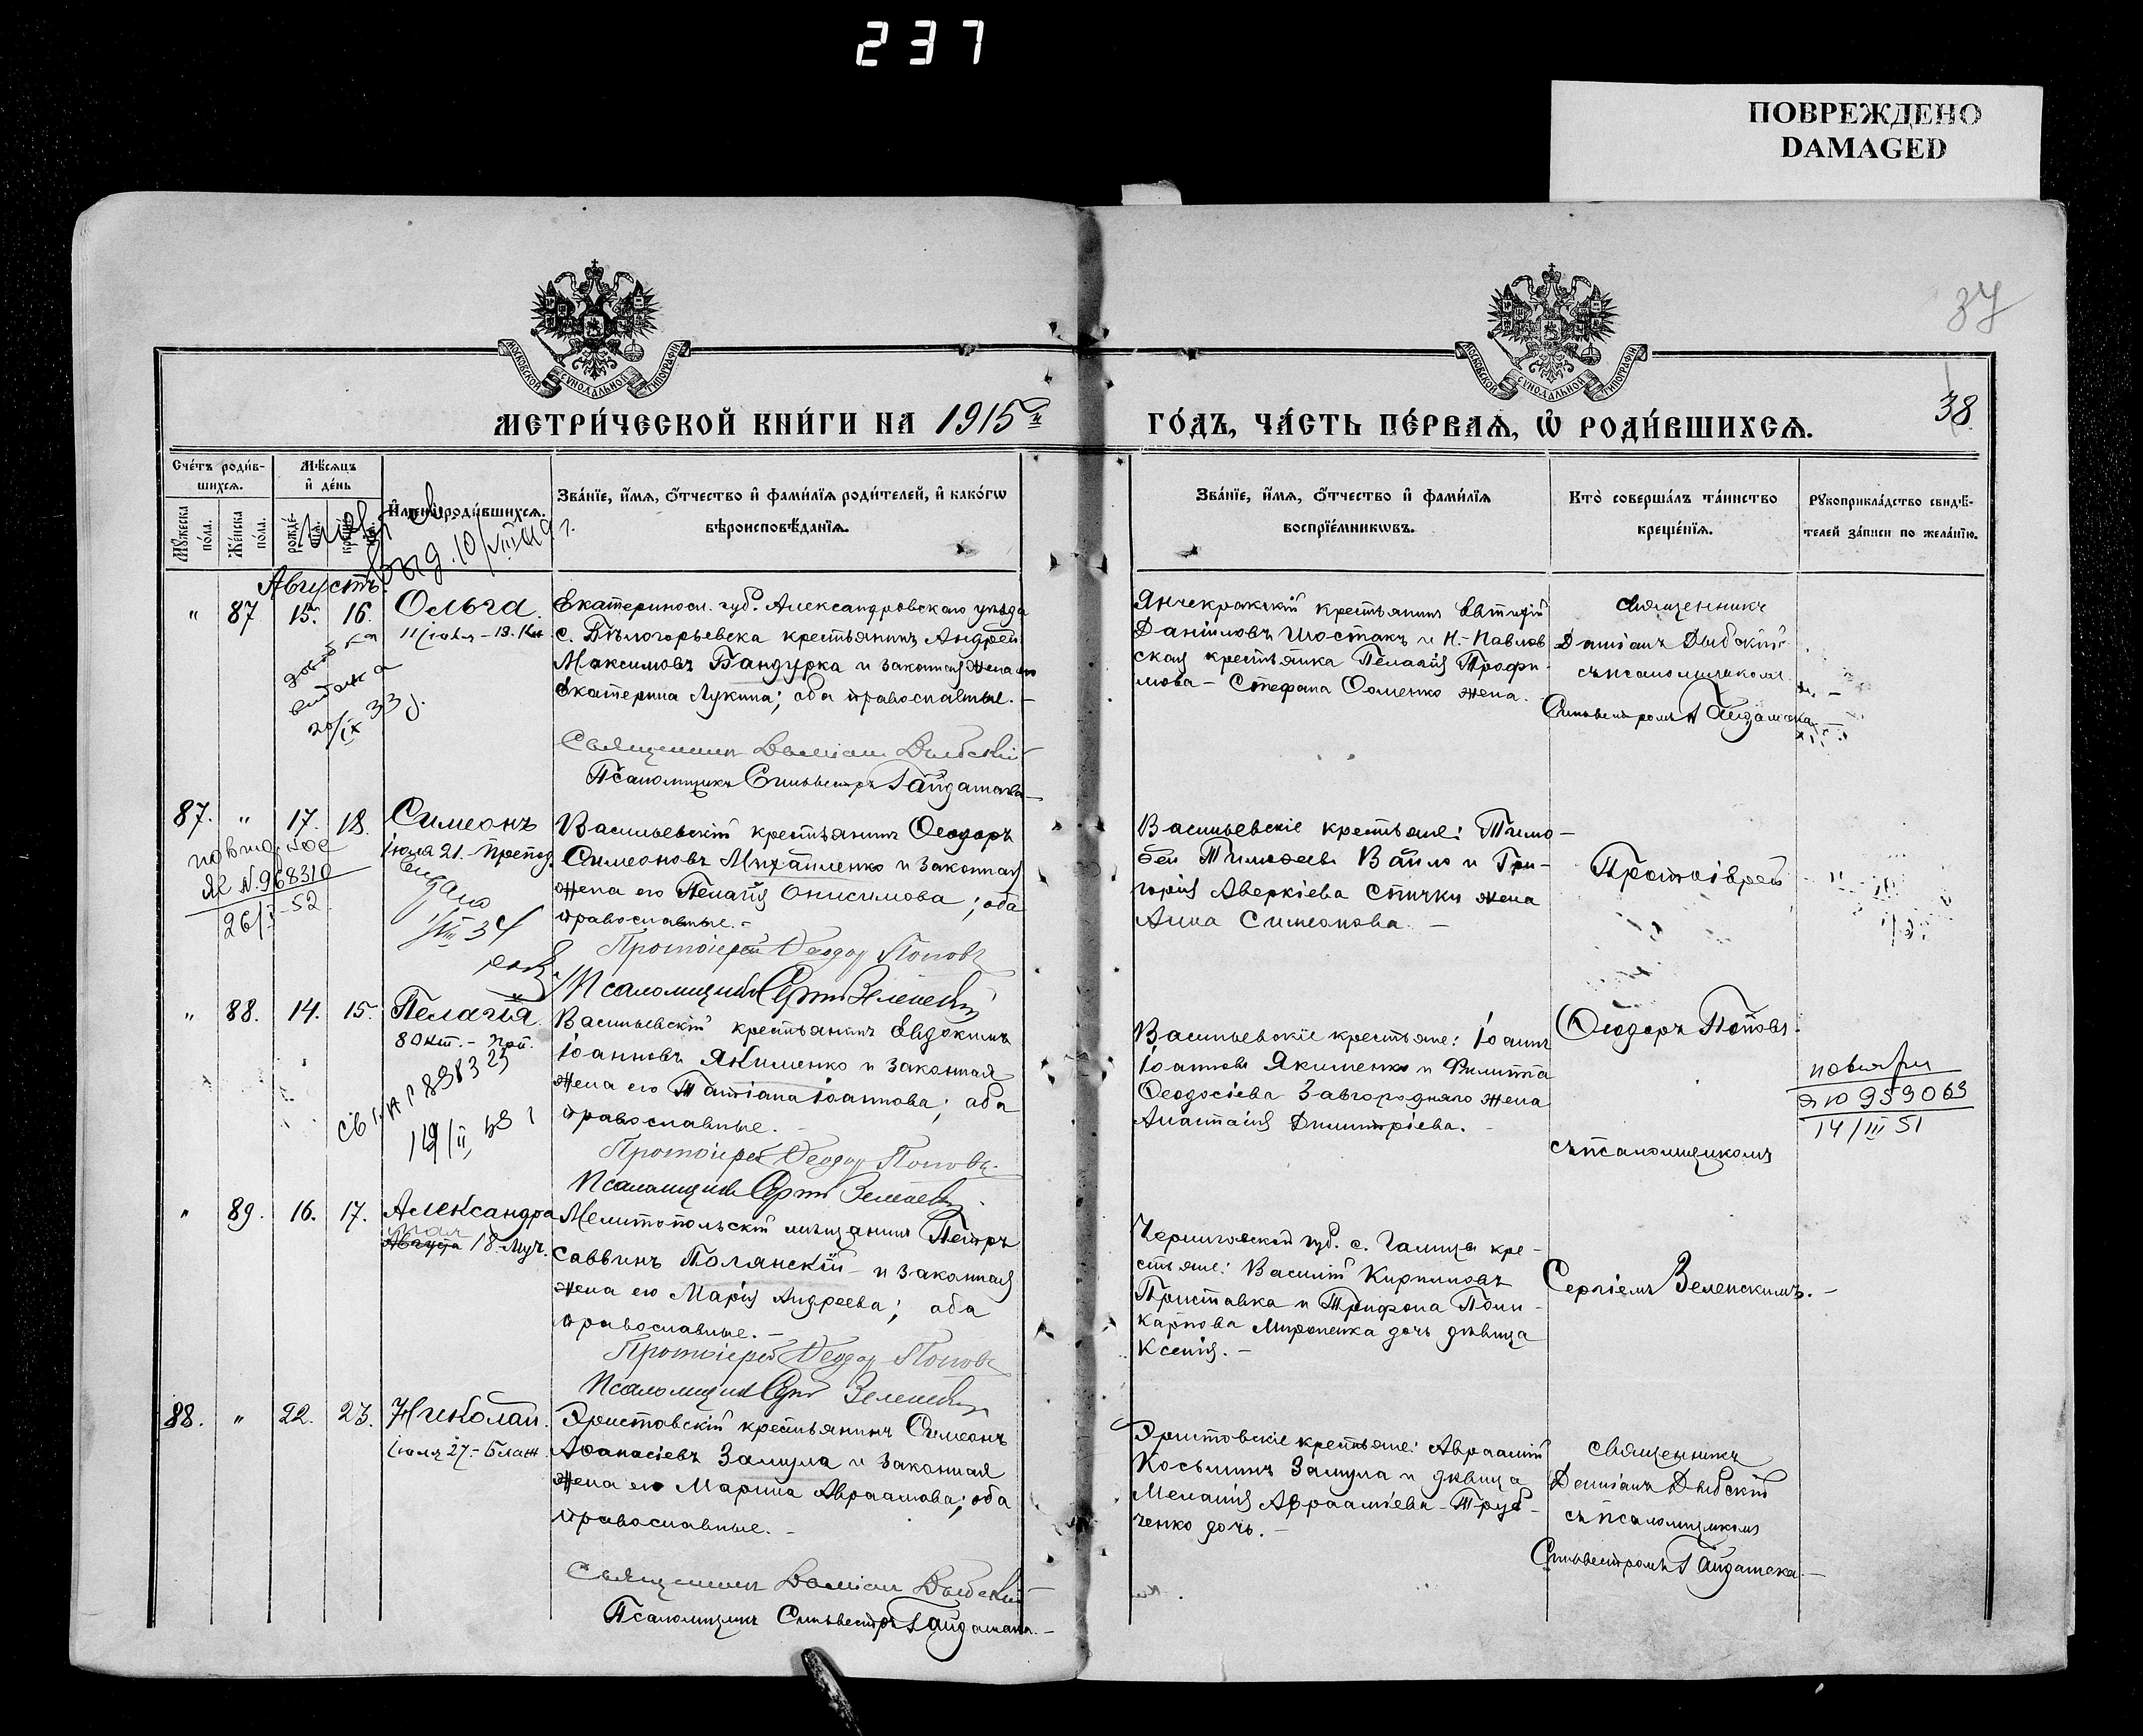 237
ПОВРЕЖДЕНО
DAMAGED
37
38
МОСКОВСКОЙ СУНОДАЛЬНОЙ ТИПОГРАФІИ
МОСКОВСКОЙ СУНОДАЛЬНОЙ ТИПОГРАФІИ
МЕТРИ́ЧЕСКОЙ КНИ́ГИ НА 1915й
ГО́ДЪ, ЧА́СТЬ ПЕ́РВАѦ, Ѡ҆ РОДИ́ВШИХСѦ.
Сче́тъ роди́в-
шихся.
Мѣ́сяцъ
и҆ де́нь
Мꙋ́жеска по́ла.
Же́нска по́ла.
рожде-
креще-
И҆мена̀ роди́вшихся.
Зва́нїе, и҆́мя, ѻ҆́тчество и҆ фами́лїя роди́телей, и҆ како́гѡ
вѣроисповѣ́данїя.
Зва́нїе, и҆́мя, ѻ҆́тчество и҆ фами́лїя
воспрїе́мникѡвъ.
Кто̀ соверша́лъ та́инство
креще́нїя.
Рꙋкоприкла́дство свидѣ́-
телей за́писи по жела́нїю.
выд. 10/VIII
Августъ.
" 87 15. 16. Ольга.
11 іюля -
20/IX 33 г.
Екатериносл. губ. Александровскаго уѣзда
с. Бѣлогорьевска крестьянинъ Андрей
Максимовъ Бандурка и законная жена его
Екатерина Лукина; оба православные. -
Священникъ Даміанъ Дыбскій
Псаломщикъ Сильвестръ Гайдамака
Янчекракскій крестьянинъ Евтихій
Даніиловъ Шостакъ и Н.-Павлов
ская крестьянка Пелагія Трофи-
мова - Стефана Фоменко жена.
Священникъ
Даміанъ Дыбскій
съ псаломщикомъ
Сильвестромъ Гайдамака
87. " 17. 18. Симеонъ
іюля 21. - Препод.
повторное
N. 968310
26/I-52
выдано
/VIII 34
Васильевскій крестьянинъ Ѳеодоръ
Симеоновъ Михайленко и законная
жена его Пелагія Онисимова; оба
православные. -
Протоіерей Ѳеодоръ Поповъ
Псаломщикъ Сергій Зеленскій
Васильевскіе крестьяне: Тимо-
ѳей Тимоѳеевъ Вайло и Гри-
горія Аверкіева Стички жена
Анна Симеонова. -
Протоіерей
" 88. 14. 15. Пелагія
8 Окт. - Преп.
19/II 43 г
Васильевскій крестьянинъ Евдокимъ
Іоанновъ Якименко и законная
жена его Татіана Іоаннова; оба
православные. -
Протоіерей Ѳеодоръ Поповъ.
Псаломщикъ Сергій Зеленскій
Васильевскіе крестьяне: Іоаннъ
Іоанновъ Якименко и Филиппа
Ѳеодосіева Завгородняго жена
Анастасія Димитріева. -
Ѳеодоръ Поповъ.
съ псаломщикомъ
959063
14/III 51
" 89. 16. 17. Александра
мая
Августа 18-Муч.
Мелитопольскій мѣщанинъ Петръ
Саввинъ Полянскій - и законная
жена его Марія Андреева; оба
православные. -
Протоіерей Ѳеодоръ Поповъ
Псаломщикъ Сергій Зеленскій
Черниговской губ. с. Галицы кре-
стьяне: Василій Кирилловъ
Приставка и Трифона Поли-
карпова Мироненка дочь дѣвица
Ксенія. -
Сергіемъ Зеленскимъ. -
88. " 22. 23. Николай.
Іюля 27. - Блаж
Эристовскій крестьянинъ Симеонъ
Аѳанасіевъ Замула и законная
жена его Марина Авраамова; оба
православные. -
Священникъ Даміанъ Дыбскій
Псаломщикъ Сильвестръ Гайдамака. -
Эристовскіе крестьяне: Авраамій
Косьминъ Замула и дѣвица
Меланія Авраамієва - Труб-
ченко дочь. -
Священникъ
Даміанъ Дыбскій
съ псаломщикомъ
Сильвестромъ Гайдамака. -